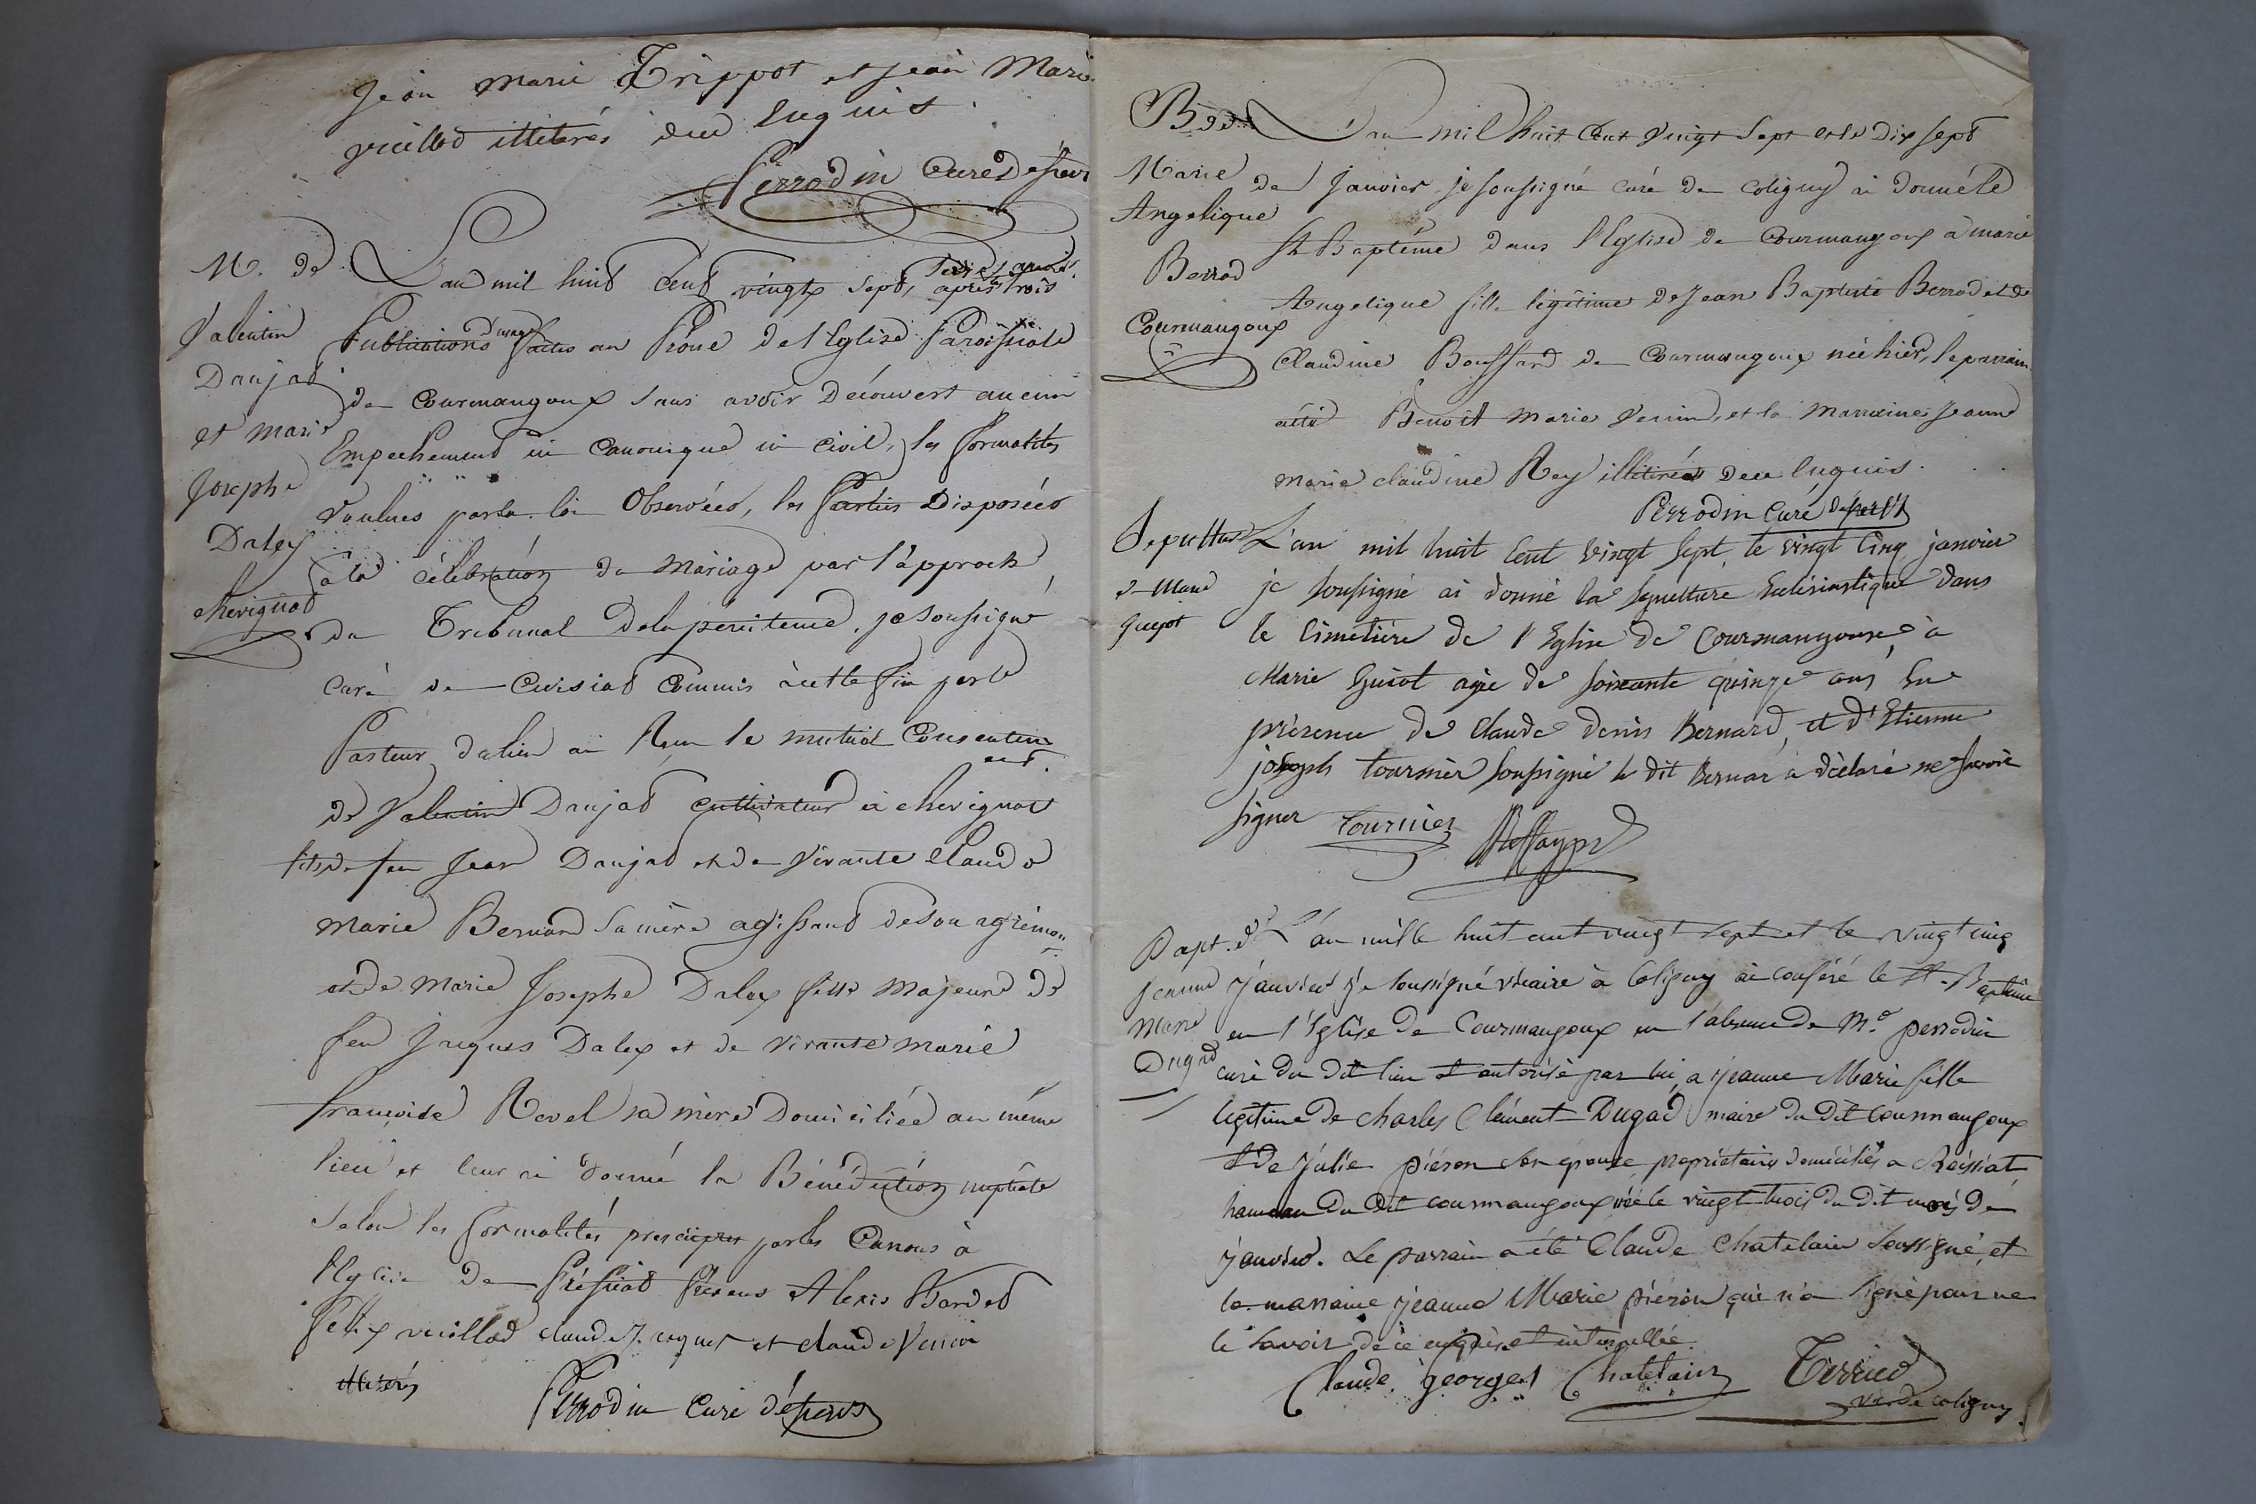 Jean Marie Trippot et Jean Marie
vuillod illiterés deu luquis.
Perrodin Curé
M. de
Valentin
Daujat
et marie
Josephe
Daley
chevignat
L'an mil huit Cent vingt Sept, après trois
Publications d'usage faites au Prone de l'Eglise Paroissiale
de Courmangoux sans avoir Découvert aucun
Empechement ni Canonique ni Civil, les formalités
Voulues par la loi Observées, les Parties Disposées
à la célébration du Mariage par l'approche
du Tribunal De la penitence, je soussigné
Curé de Cuisiat Commis à cette fin par le
Pasteur du lieu ai Reçu le mutuel Consentem
ent.
de Valentin Daujat cultivateur à chevignat
fils de feu Jean Daujat et de Vivante Claude
Marie Bernard sa mère agissant de son agrémen
et de Marie Josephe Daley fille Majeure de
feu Jacques Daley et de Vivante Marie
françoise Revel sa mère Domiciliée au même
lieu et leur ai Donné la Bénédiction nuptiale
Selon les formalités prescriptes par les Canons à
l'Eglise de Préssiat Présens Alexis Bardet
felix vuillod claude Jacquet et claude Verrin
illiterés
Perrodin Curé
Marie
Angelique
Berrod
Courmangoux
L'an mil huit Cent Vingt Sept et le Dix Sept
de Janvier je soussigné curé de coligny ai donné le
St Baptême dans l'Eglise de Courmangoux à marie
Angelique fille légitime de Jean Baptiste Berrod et de
Claudine Bouffard de Courmangoux née hier, le parrain
a été Benoit Marie Verrin, et la Marraine Jeanne
Marie claudine Rey illitirés deu luquis.
Perrodin Curé
Sepulture
de Marie
Guyot
L'an mil huit Cent vingt Sept, le vingt Cinq janvier
je soussigné ai donné la sepulture Ecclésiastique dans
le Cimetière de l'Eglise de Courmangoux, à
Marie Guiot agée de soixante quinze ans, En
présence de Claude denis Bernard, et d'Etienne
joseph tournier soussigné le dit Bernar a déclaré ne savoir
signer Tournier
Bapt. de
Jeanne
Marie
Dugad
L'an mille huit cent vingt sept et le vingt cinq
janvier je soussigné vicaire à Coligny ai conféré le St. Baptême
en l'Eglise de Courmangoux en l'absence de Mr. perrodin
curé du dit lieu et autorisé par lui, a jeanne Marie fille
légitime de Charles Clément Dugad maire du dit Courmangoux
et de Julie piéron son épouse, propriétaires domiciliés a Roissiat,
hameau du dit courmangoux, née le vingt trois du dit mois de
janvier. Le parrain a été Claude Chatelain Soussigné, et
la marraine jeanne Marie piéron qui n'a signé pour ne
le savoir de ce enquise et interpellée.
Claude georges Chatelain Terrier
vic. de coligny.